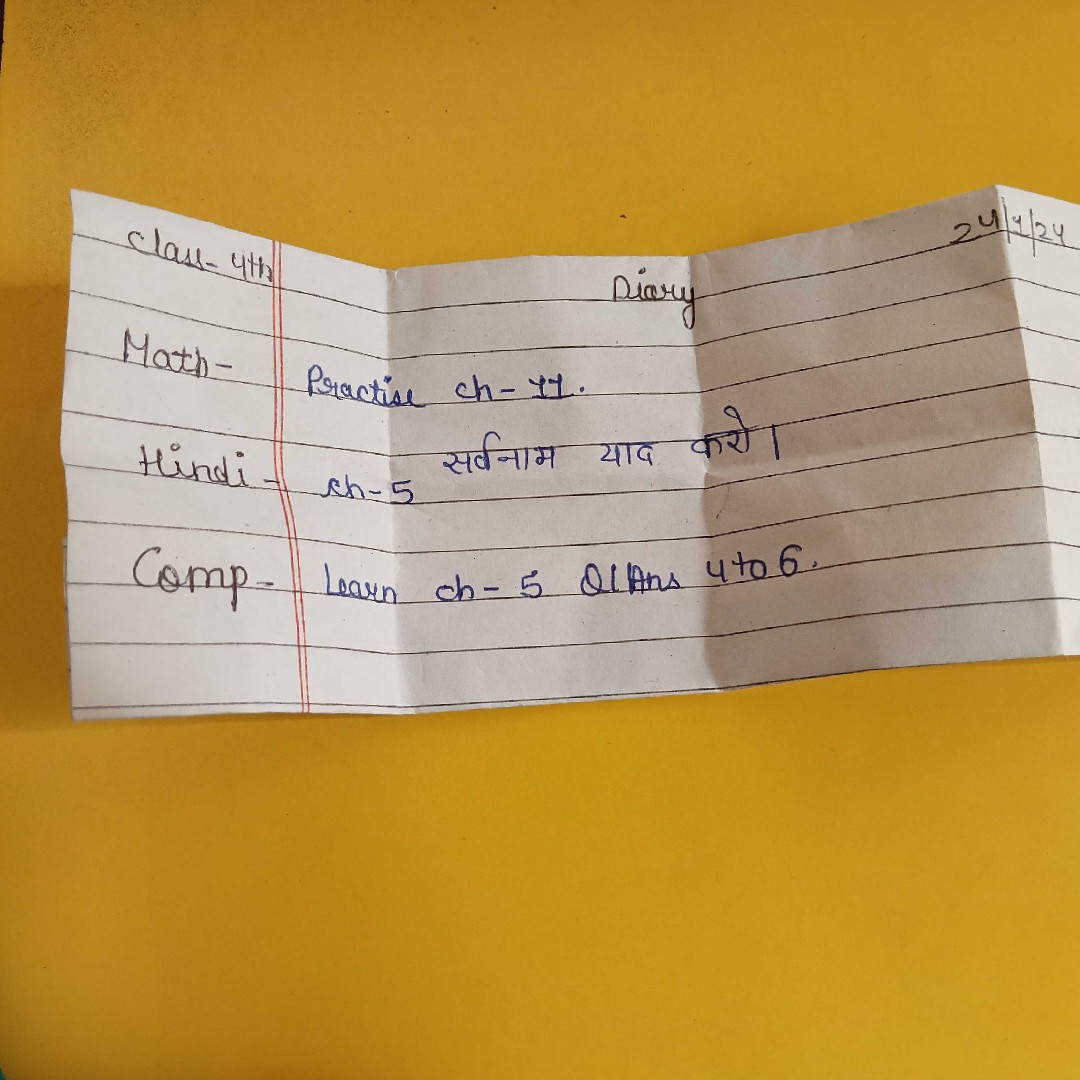 Class- 4th
Diary
24/1/24
Math- Practise ch- 11.
Hindi- ch-5 सर्वनाम याद करो।
Comp- Learn ch- 5 Q/Ans 4 to 6.